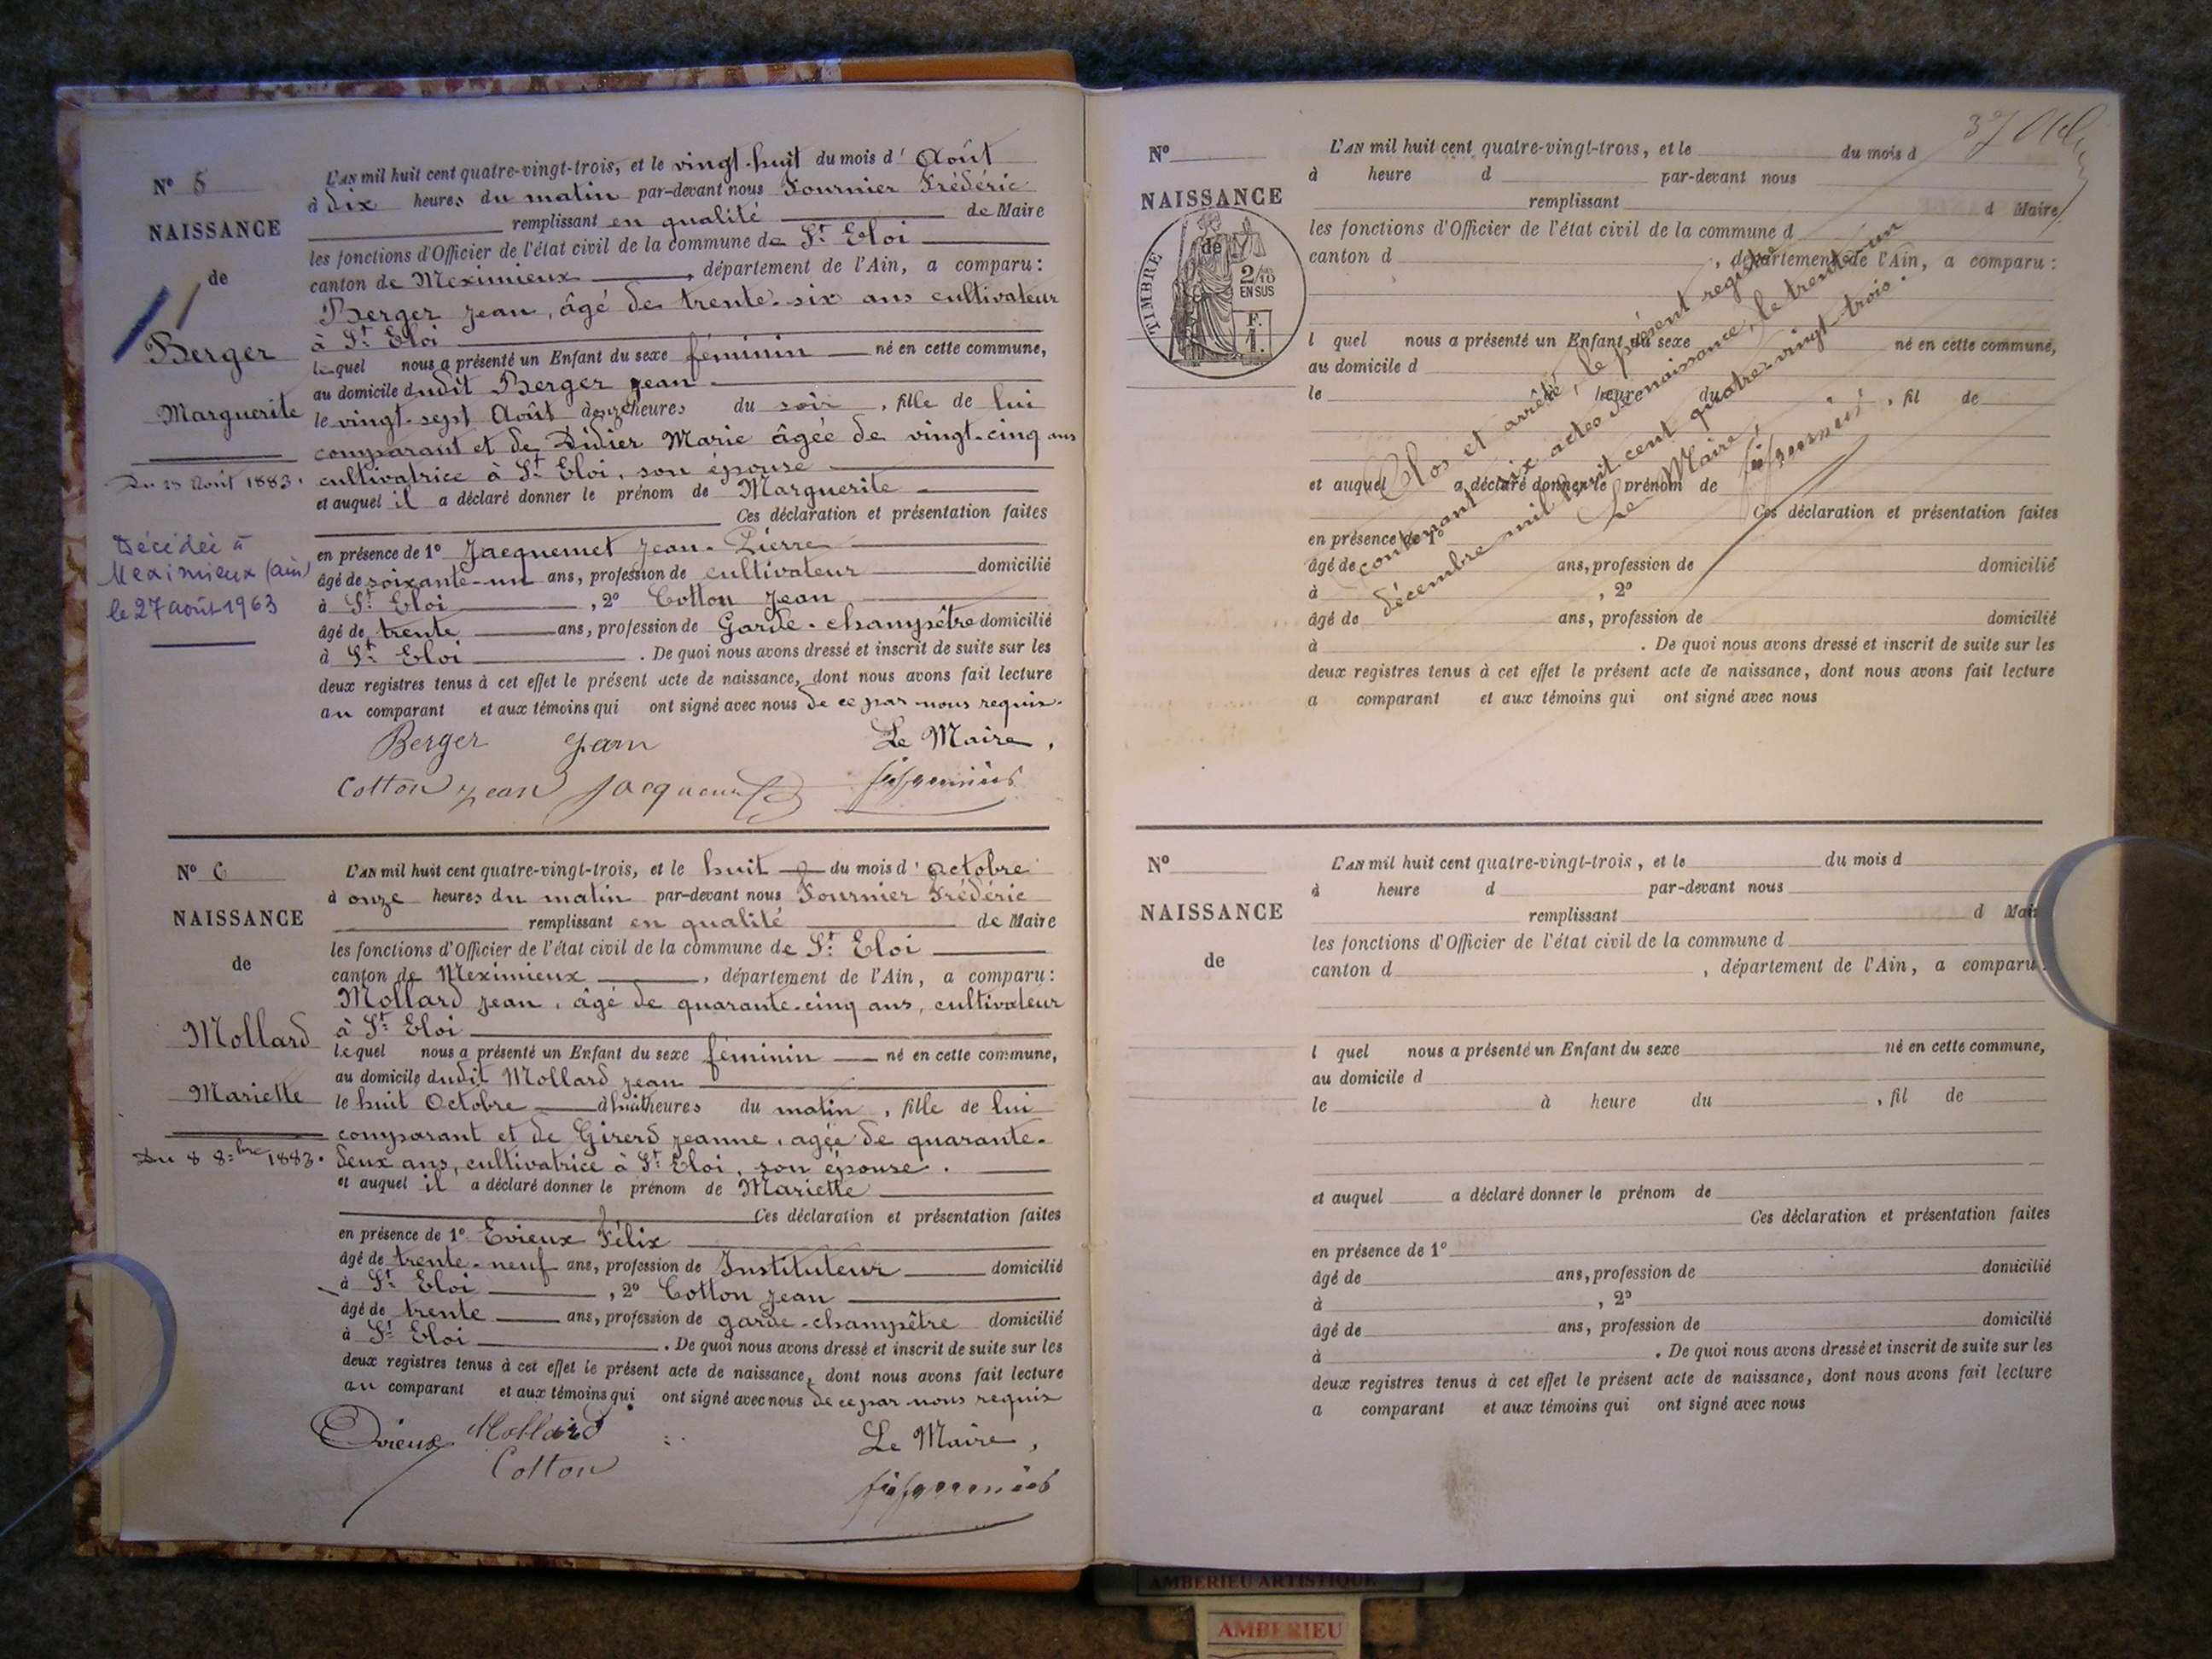 N° 5
NAISSANCE
de
Berger
Marguerite
Du 28 Août 1883.
Décédée à
Meximieux (ain)
le 27 août 1963
L'AN mil huit cent quatre-vingt-trois, et le vingt-huit du mois d' Août
à dix heures du matin par-devant nous Fournier Frédéric
remplissant en qualité de Maire
les fonctions d'Officier de l'état civil de la commune de St. Eloi
canton de Meximieux, département de l'Ain, a comparu :
Berger Jean, âgé de trente-six ans cultivateur
à St. Eloi
lequel nous a présenté un Enfant du sexe féminin né en cette commune,
au domicile dudit Berger Jean
le vingt-sept Août à onze heures du soir, fille de lui
comparant et de Didier Marie âgée de vingt-cinq ans
cultivatrice à St. Eloi, son épouse
et auquel il a déclaré donner le prénom de Marguerite
Ces déclaration et présentation faites
en présence de 1° Jacquemet Jean-Pierre
âgé de soixante-un ans, profession de cultivateur domicilié
à St. Eloi, 2° Cotton Jean
âgé de trente ans, profession de Garde-champêtre domicilié
à St. Eloi. De quoi nous avons dressé et inscrit de suite sur les
deux registres tenus à cet effet le présent acte de naissance, dont nous avons fait lecture
au comparant et aux témoins qui ont signé avec nous de ce par nous requis.
Berger Jean
Le Maire,
Cotton Jean
N° 6
NAISSANCE
de
Mollard
Mariette
Du 8 8:bre 1883.
L'AN mil huit cent quatre-vingt-trois, et le huit du mois d' Octobre
à onze heures du matin par-devant nous Fournier Frédéric
remplissant en qualité de Maire
les fonctions d'Officier de l'état civil de la commune de St. Eloi
canton de Meximieux, département de l'Ain, a comparu :
Mollard Jean, âgé de quarante-cinq ans, cultivateur
à St. Eloi
lequel nous a présenté un Enfant du sexe féminin né en cette commune,
au domicile dudit Mollard Jean
le huit Octobre à huit heures du matin, fille de lui
comparant et de Girerd Jeanne, agée de quarante-
deux ans, cultivatrice à St. Eloi, son épouse.
et auquel il a déclaré donner le prénom de Mariette
Ces déclaration et présentation faites
en présence de 1° Evieux Félix
âgé de trente-neuf ans, profession de Instituteur domicilié
à St. Eloi, 2° Cotton Jean
âgé de trente ans, profession de garde-champêtre domicilié
à St. Eloi. De quoi nous avons dressé et inscrit de suite sur les
deux registres tenus à cet effet le présent acte de naissance, dont nous avons fait lecture
au comparant et aux témoins qui ont signé avec nous de ce par nous requis
Evieux Mollard
Cotton
Le Maire,
37
N°
NAISSANCE
de
TIMBRE
2/10
EN SUS
F.
1.
L'AN mil huit cent quatre-vingt-trois, et le du mois d
à heure d par-devant nous
remplissant d Maire
les fonctions d'Officier de l'état civil de la commune d
canton d , département de l'Ain, a comparu :
l quel nous a présenté un Enfant du sexe né en cette commune,
au domicile d
le heure du , fil de
et auquel a déclaré donner le prénom de
Ces déclaration et présentation faites
en présence de 1°
âgé de ans, profession de domicilié
à , 2°
âgé de ans, profession de domicilié
à . De quoi nous avons dressé et inscrit de suite sur les
deux registres tenus à cet effet le présent acte de naissance, dont nous avons fait lecture
a comparant et aux témoins qui ont signé avec nous
Clos et arrêté, le présent registre
contenant six actes de naissance, le trente-un
décembre mil huit cent quatre-vingt-trois.
Le Maire,
N°
NAISSANCE
de
L'AN mil huit cent quatre-vingt-trois, et le du mois d
à heure d par-devant nous
remplissant d Mai
les fonctions d'Officier de l'état civil de la commune d
canton d , département de l'Ain, a comparu :
l quel nous a présenté un Enfant du sexe né en cette commune,
au domicile d
le à heure du , fil de
et auquel a déclaré donner le prénom de
Ces déclaration et présentation faites
en présence de 1°
âgé de ans, profession de domicilié
à , 2°
âgé de ans, profession de domicilié
à . De quoi nous avons dressé et inscrit de suite sur les
deux registres tenus à cet effet le présent acte de naissance, dont nous avons fait lecture
a comparant et aux témoins qui ont signé avec nous
AMBERIEU ARTISTIQUE
AMBERIEU